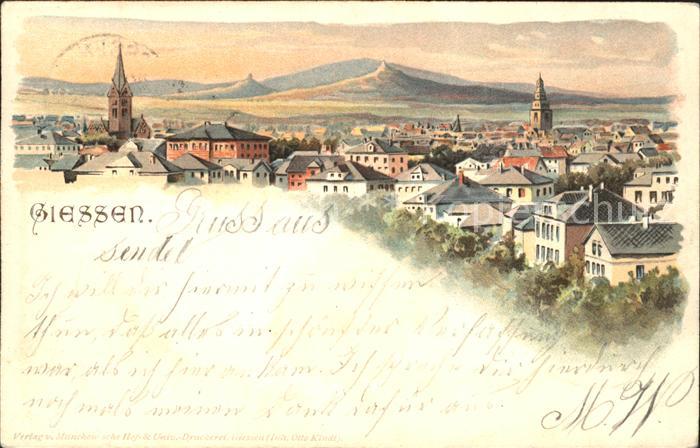 GIESSEN. Gruss aus
sendet
Ich will dir hiermit zu wissen
thun, daß alles in schönster Verfassung
war, als ich hier an kam. Ich spreche dir hierdurch
nochmals meinen Dank dafür aus.
M. W.
Verlag v. Münchow'sche Hof- & Univ.-Druckerei, Giessen (Inh. Otto Kindt).